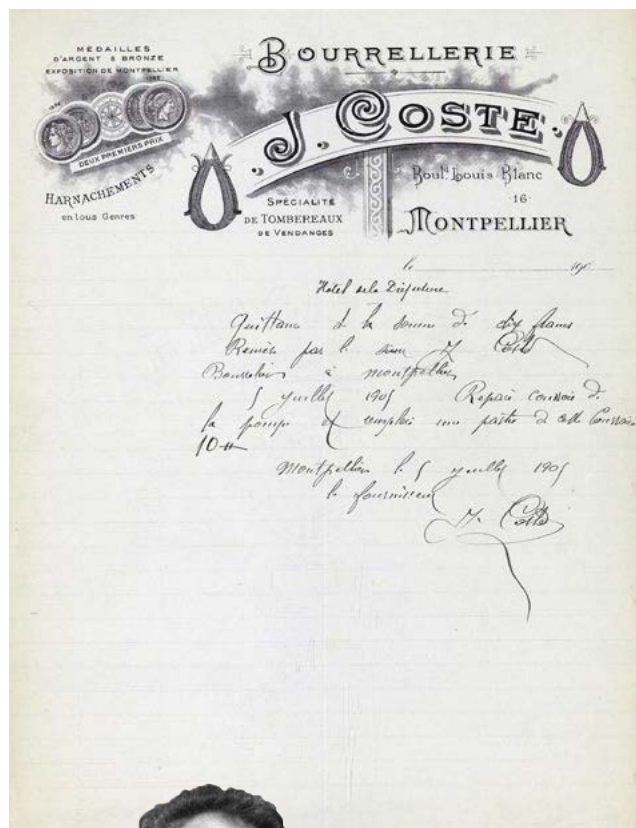 MEDAILLES
D'ARGENT & BRONZE
EXPOSITION DE MONTPELLIER
DEUX PREMIERS PRIX
HARNACHEMENTS
en tous Genres
BOURRELLERIE
J. COSTE
SPÉCIALITÉ
DE TOMBEREAUX
DE VENDANGES
Boulᵈ Louis Blanc
16
MONTPELLIER
le 190
Hotel de la
Quittance de la somme de dix francs
Remise par le sieur J. Coste
Bourrelier à montpellier
5 juillet 1905 Reparé courroie de
la pompe et emploi une partie de cette Courroie
10 #
Montpellier le 5 juillet 1905
le fournisseur
J. Coste